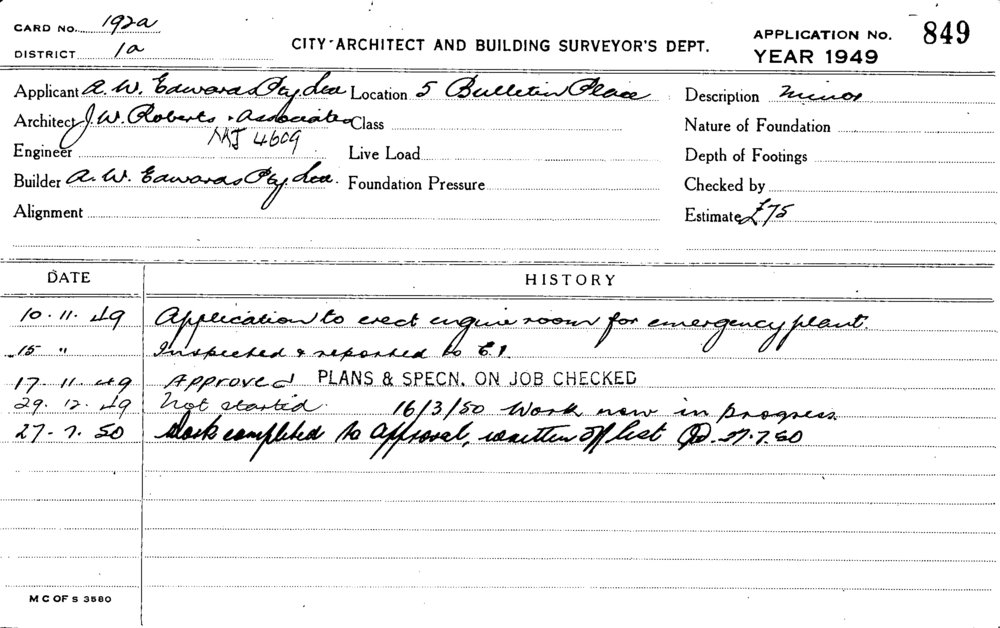 CARD NO. 192a
DISTRICT 1a
CITY ARCHITECT AND BUILDING SURVEYOR'S DEPT.
APPLICATION NO. 849
YEAR 1949
Applicant A. W. Edwards Pty Ltd Location 5 Bulletin Place Description Minor
Architect J. W. Roberts & Associates Class Nature of Foundation
MJ 4609
Engineer Live Load Depth of Footings
Builder A. W. Edwards Pty Ltd. Foundation Pressure Checked by
Alignment Estimate £75
DATE HISTORY
10. 11. 49 Application to erect engine room for emergency plant.
15 " Inspected & reported to C.I.
17. 11. 49 Approved PLANS & SPECN. ON JOB CHECKED
29. 12. 49 Not started. 16/3/50 Work now in progress
27. 7. 50 Work completed to approval, written off list 27.7.50
M C OF S 3580